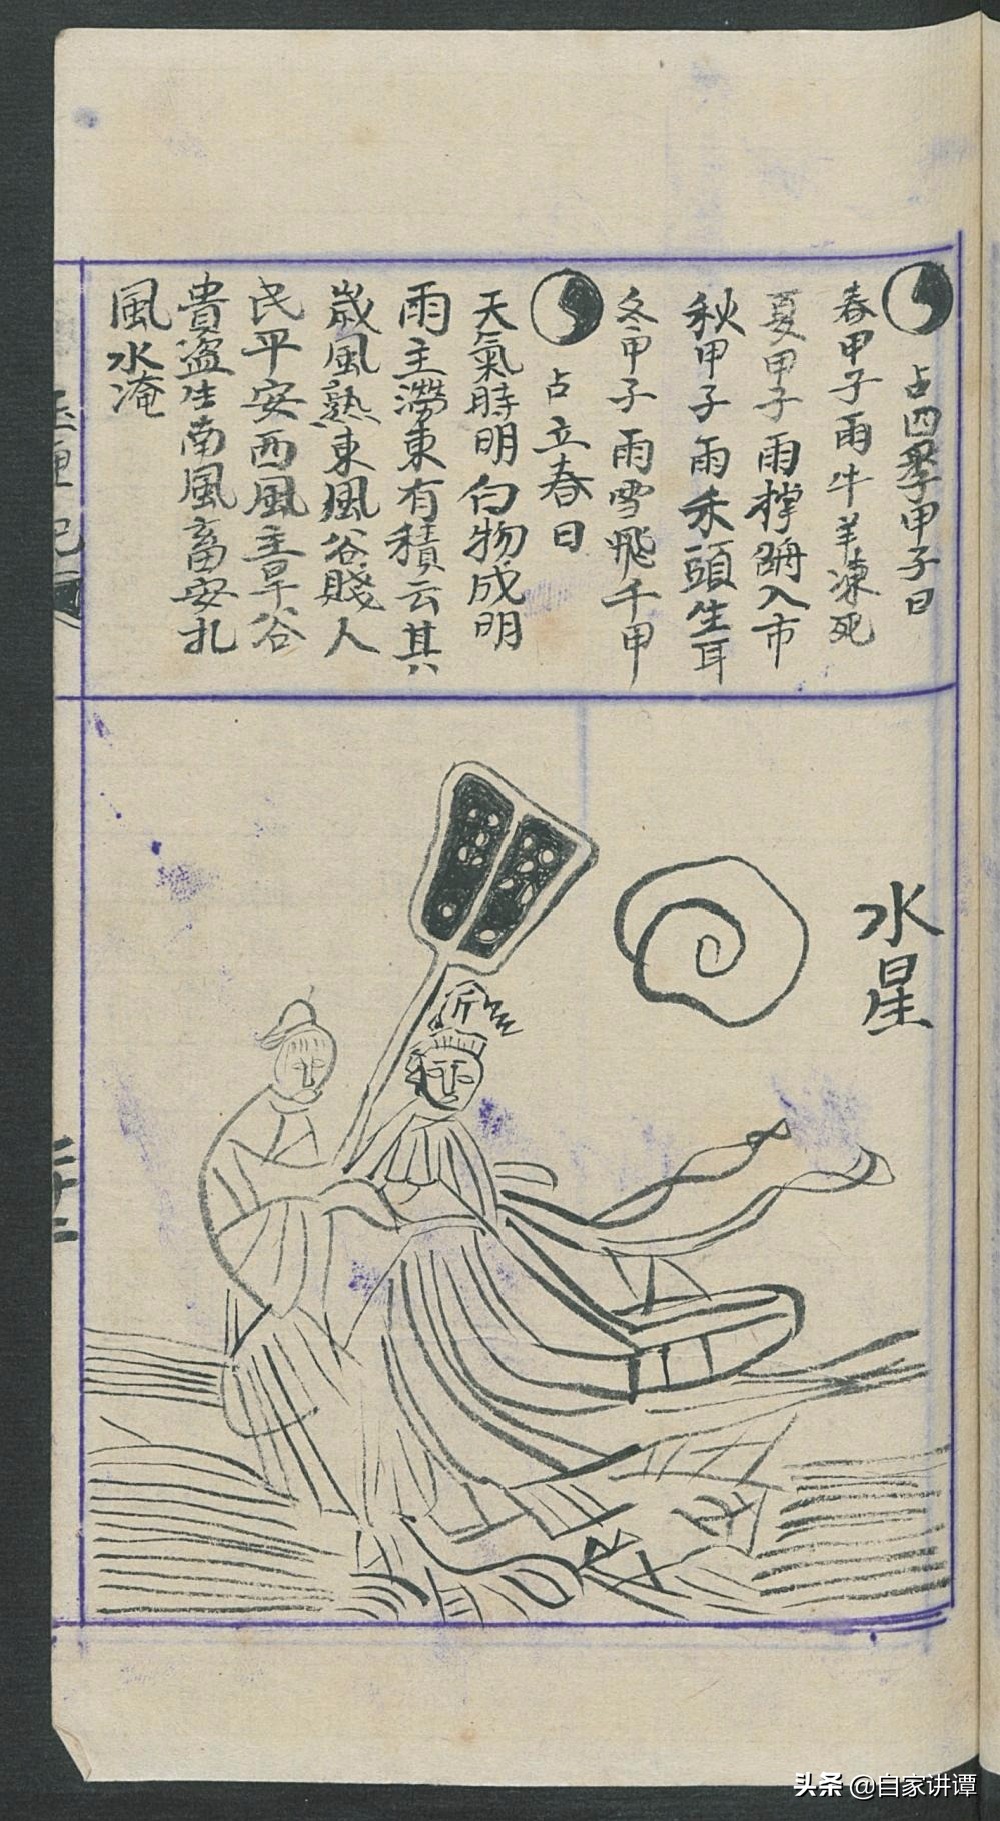 占四季甲子日
春甲子雨牛羊凍死
夏甲子雨撑船入市
秋甲子雨禾頭生耳
冬甲子雨雪飛千甲
占立春日
天氣時明白物成明
雨主澇東有積云其
歲風熟東風谷賤人
民平安西風主旱谷
貴盗生南風畜安扎
風水淹
水星
玉匣記
二十二
头条 @自家讲谭